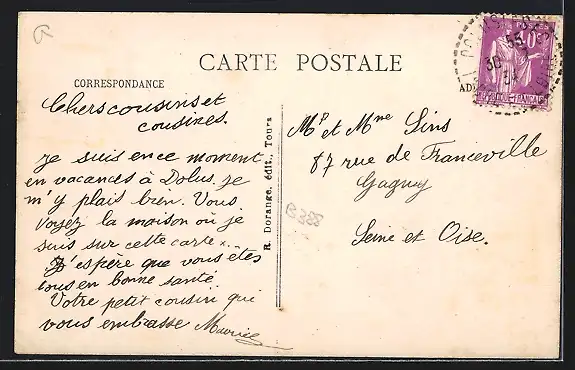 CARTE POSTALE
CORRESPONDANCE
Chers cousins et
cousines.
Je suis en ce moment
en vacances à Dolus. Je
m'y plais bien. Vous
voyez la maison où je
suis sur cette carte x...
J'espère que vous êtes
tous en bonne santé
Votre petit cousin qui
vous embrasse Maurice
R. Dorange, édit., Tours
B388
Mr et Mme Sins
87 rue de Franceville
Gagny
Seine et Oise.
POSTES